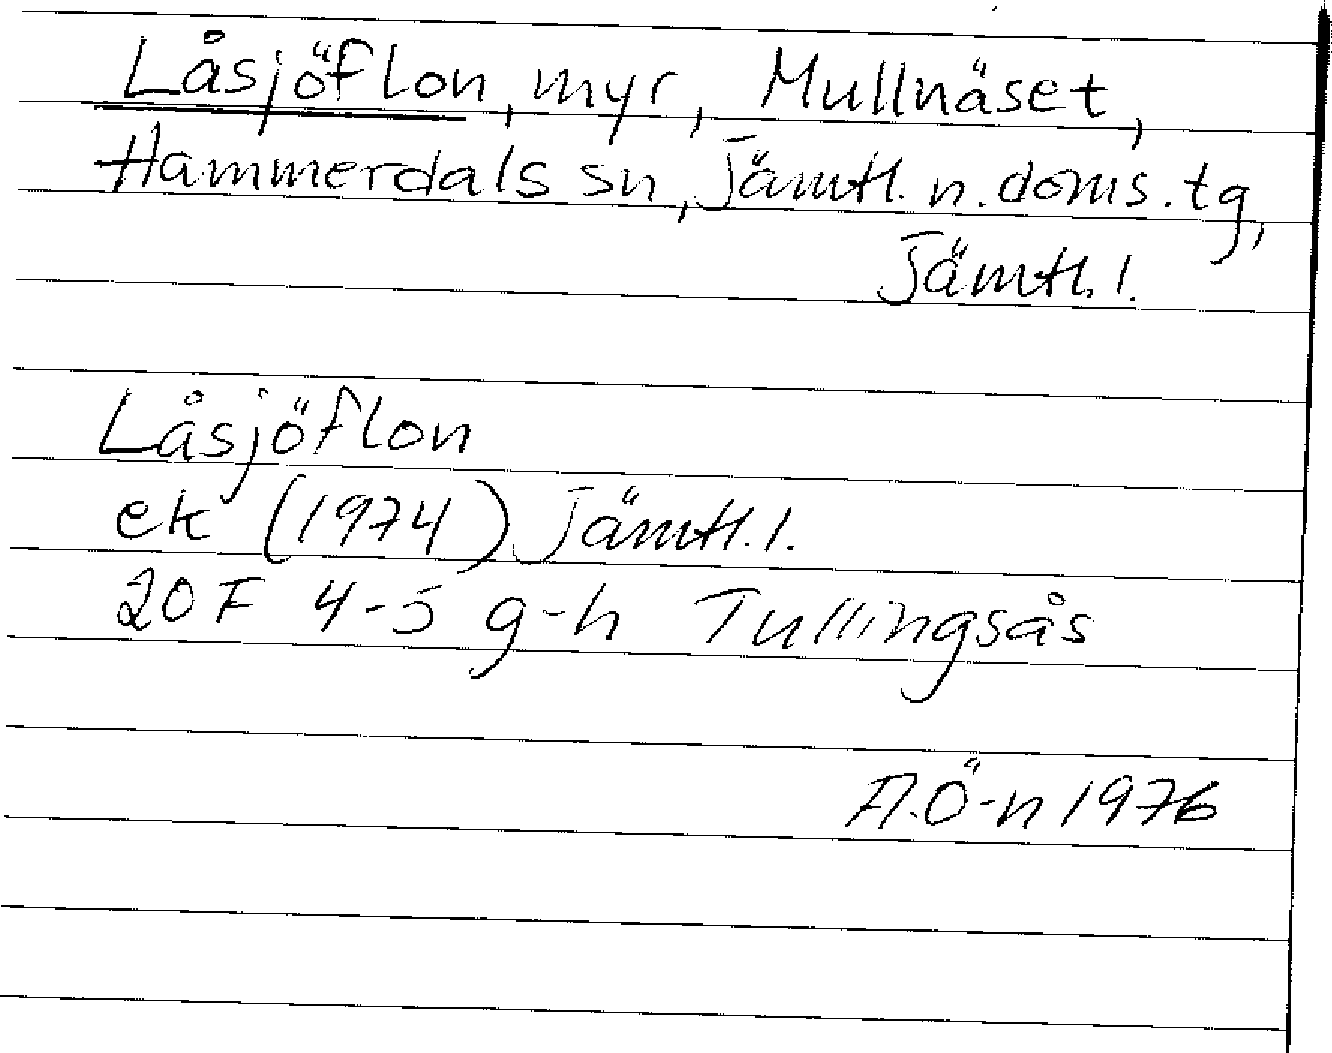 Låsjöflon, myr, Mullnäset,
Hammerdals sn, Jämtl. n. doms. tg,
Jämtl. l.
Låsjöflon
ek (1974) Jämtl. l.
20 F 4-5 g-h Tullingsås
A.Ö-n 1976